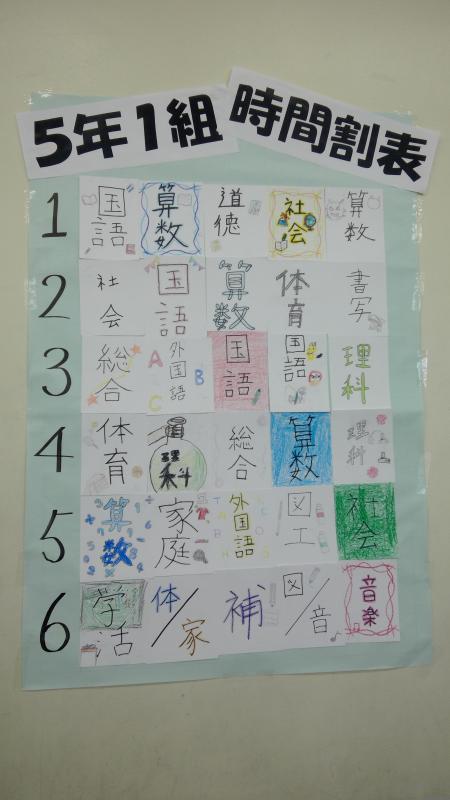 5年1組 時間割表
1 国語 算数 道徳 社会 算数
2 社会 国語 算数 体育 書写
3 総合 外国語 A B C 国語 国語 理科
4 体育 理科 総合 算数 理科
5 算数 家庭 外国語 図工 社会
6 学活 体/家 補 図/音 音楽